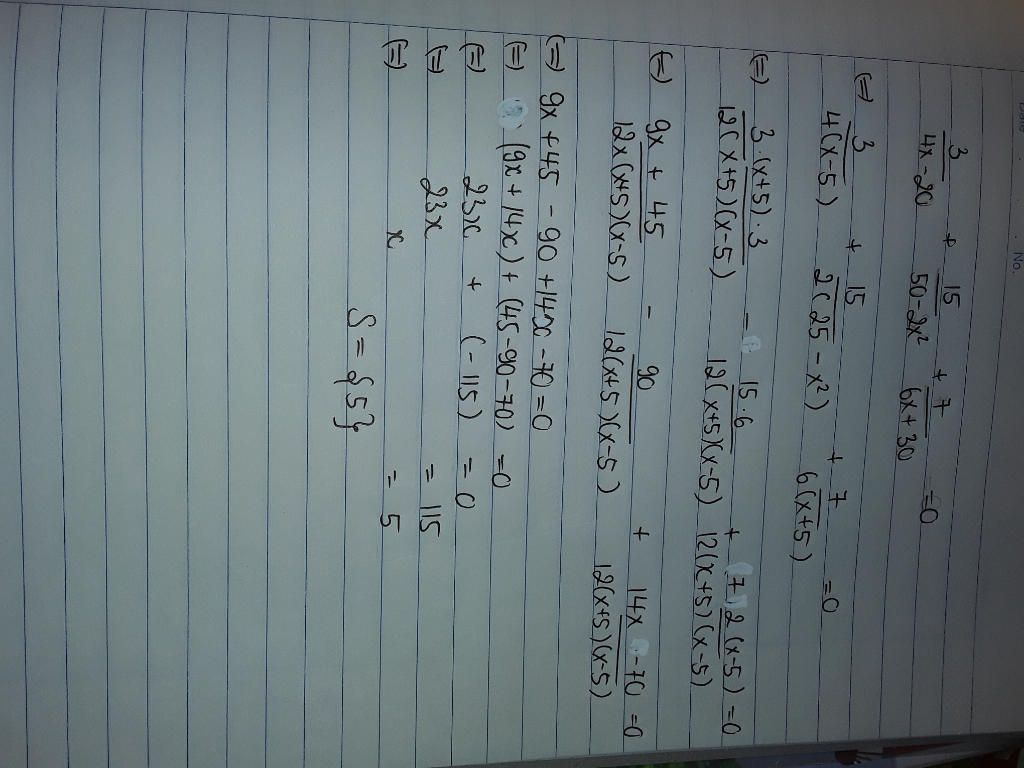 No.
3/(4x-20) + 15/(50-2x²) + 7/(6x+30) =0
(=) 3/(4(x-5)) + 15/(2(25-x²)) + 7/(6(x+5)) =0
(=) (3.(x+5).3)/(12(x+5)(x-5)) - (15.6)/(12(x+5)(x-5)) + (7.2(x-5))/(12(x+5)(x-5)) =0
(=) (9x + 45)/(12x(x+5)(x-5)) - 90/(12(x+5)(x-5)) + (14x-70)/(12(x+5)(x-5)) =0
(=) 9x+45 - 90 +14x -70=0
(=) (9x + 14x) + (45-90-70) =0
(=) 23x + (-115) = 0
(=) 23x = 115
(=) x = 5
S = {5}